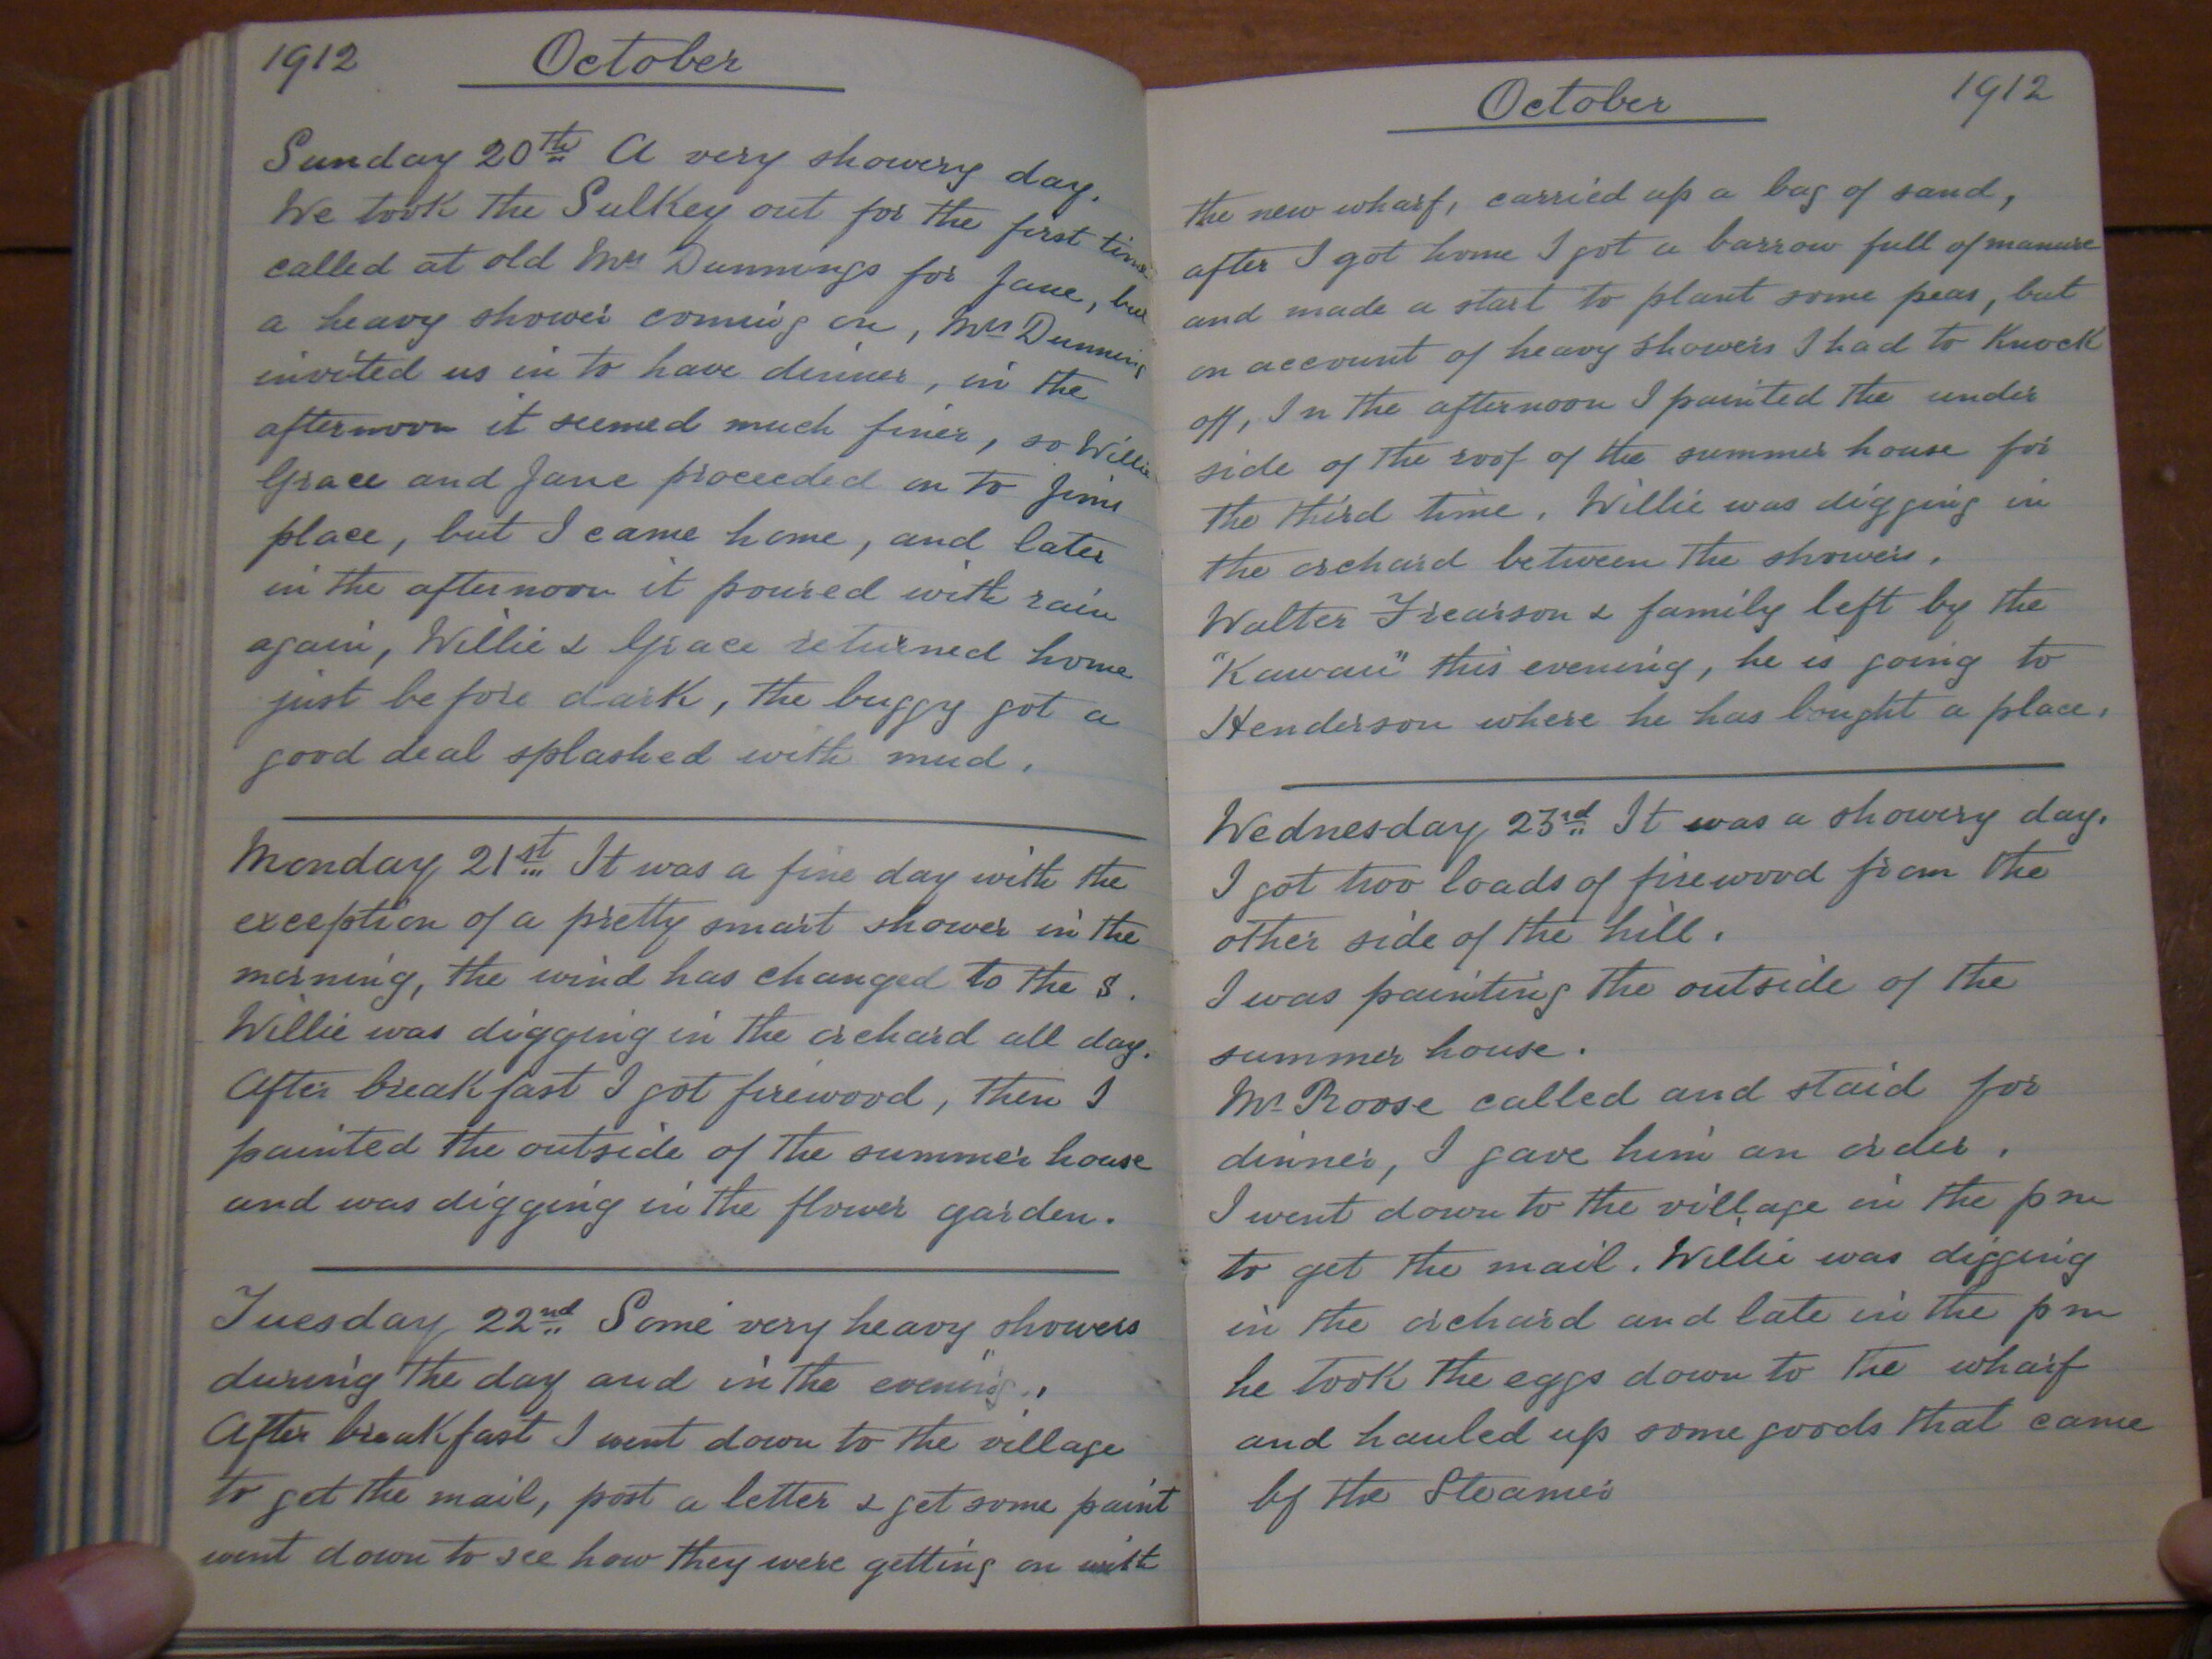 1912 October
Sunday 20th A very showery day.
We took the Sulkey out for the first time
called at old Mrs Dunnings for Jane, but
a heavy shower coming on, Mrs Dunning
invited us in to have dinner, in the
afternoon it seemed much finer, so Willie
Grace and Jane proceeded on to Jims
place, but I came home, and later
in the afternoon it poured with rain
again, Willie & Grace returned home
just before dark, the buggy got a
good deal splashed with mud.
Monday 21st It was a fine day with the
exception of a pretty smart shower in the
morning, the wind has changed to the S.
Willie was digging in the orchard all day.
After breakfast I got firewood, then I
painted the outside of the summer house
and was digging in the flower garden.
Tuesday 22nd Some very heavy showers
during the day and in the evening.
After breakfast I went down to the village
to get the mail, post a letter & get some paint
went down to see how they were getting on with
October 1912
the new wharf, carried up a bag of sand,
after I got home I got a barrow full of manure
and made a start to plant some peas, but
on account of heavy showers I had to Knock
off, In the afternoon I painted the under
side of the roof of the summer house for
the third time. Willie was digging in
the orchard between the showers.
Walter Frearson & family left by the
"Kawau" this evening, he is going to
Henderson where he has bought a place.
Wednesday 23rd It was a showery day.
I got two loads of firewood from the
other side of the hill.
I was painting the outside of the
summer house.
Mr Roose called and staid for
dinner, I gave him an order.
I went down to the village in the pm
to get the mail. Willie was digging
in the orchard and late in the pm
he took the eggs down to the wharf
and hauled up some goods that came
by the Steamer